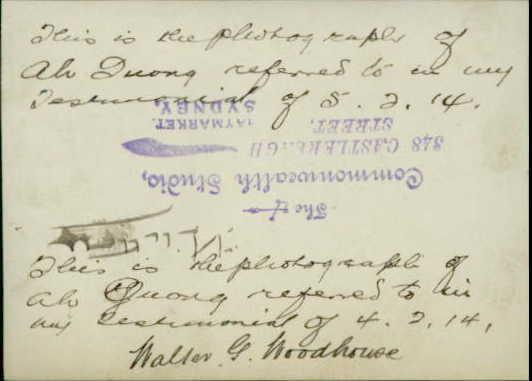 This is the photograph of
Ah Duong referred to in my
testimonial of 5. 2. 14.
The
Commonwealth Studio,
348 CASTLEREAGH
STREET,
HAYMARKET,
SYDNEY
This is the photograph of
Ah Quong referred to in
my testimonial of 4. 2. 14.
Walter. G. Woodhouse